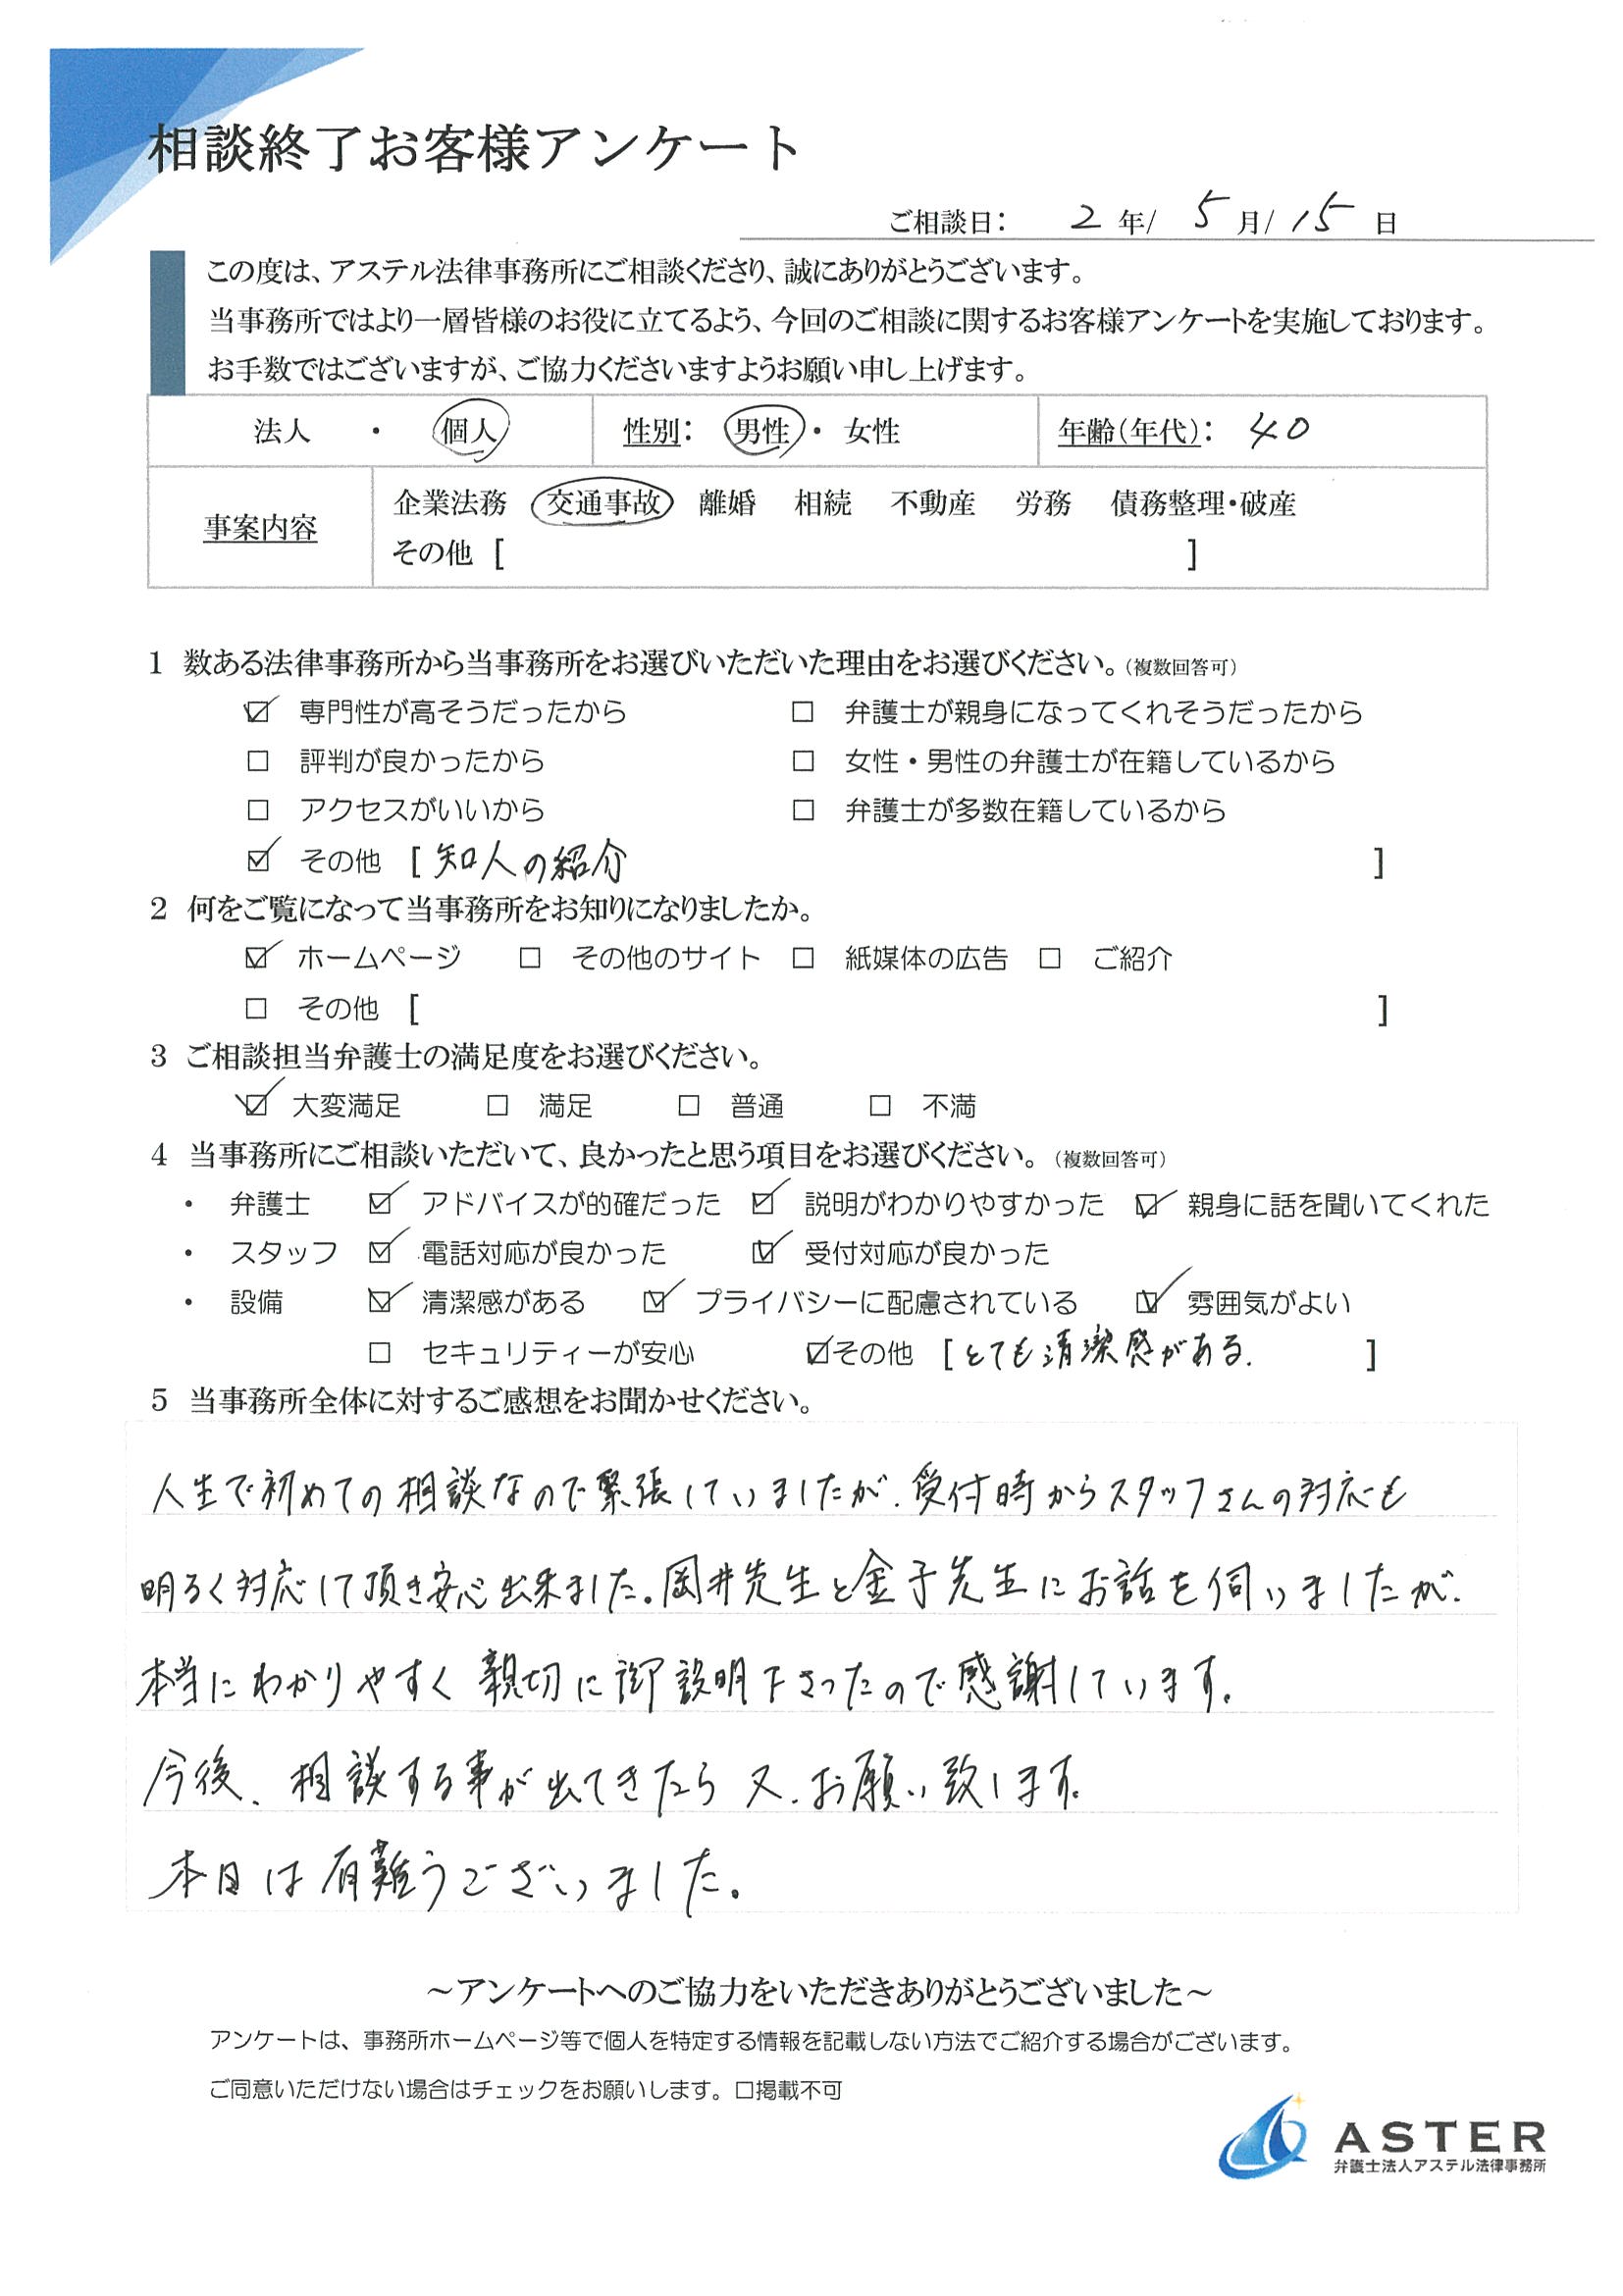 相談終了お客様アンケート
ご相談日： 2 年/ 5 月/ 15 日
この度は、アステル法律事務所にご相談くださり、誠にありがとうございます。
当事務所ではより一層皆様のお役に立てるよう、今回のご相談に関するお客様アンケートを実施しております。
お手数ではございますが、ご協力くださいますようお願い申し上げます。
法人 ・ 個人 性別： 男性 ・ 女性 年齢（年代）： 40
事案内容 企業法務 交通事故 離婚 相続 不動産 労務 債務整理・破産
その他 [ ]
1 数ある法律事務所から当事務所をお選びいただいた理由をお選びください。（複数回答可）
☑ 専門性が高そうだったから □ 弁護士が親身になってくれそうだったから
□ 評判が良かったから □ 女性・男性の弁護士が在籍しているから
□ アクセスがいいから □ 弁護士が多数在籍しているから
☑ その他 [ 知人の紹介 ]
2 何をご覧になって当事務所をお知りになりましたか。
☑ ホームページ □ その他のサイト □ 紙媒体の広告 □ ご紹介
□ その他 [ ]
3 ご相談担当弁護士の満足度をお選びください。
☑ 大変満足 □ 満足 □ 普通 □ 不満
4 当事務所にご相談いただいて、良かったと思う項目をお選びください。（複数回答可）
・ 弁護士 ☑ アドバイスが的確だった ☑ 説明がわかりやすかった ☑ 親身に話を聞いてくれた
・ スタッフ ☑ 電話対応が良かった ☑ 受付対応が良かった
・ 設備 ☑ 清潔感がある ☑ プライバシーに配慮されている ☑ 雰囲気がよい
□ セキュリティーが安心 ☑その他 [ とても清潔感がある. ]
5 当事務所全体に対するご感想をお聞かせください。
人生で初めての相談なので緊張していましたが、受付時からスタッフさんの対応も
明るく対応して頂き安心出来ました。岡井先生と金子先生にお話を伺いましたが、
本当にわかりやすく親切に御説明下さったので感謝しています。
今後、相談する事が出てきたら又、お願い致します。
本日は有難うございました。
～アンケートへのご協力をいただきありがとうございました～
アンケートは、事務所ホームページ等で個人を特定する情報を記載しない方法でご紹介する場合がございます。
ご同意いただけない場合はチェックをお願いします。□掲載不可
ASTER
弁護士法人アステル法律事務所